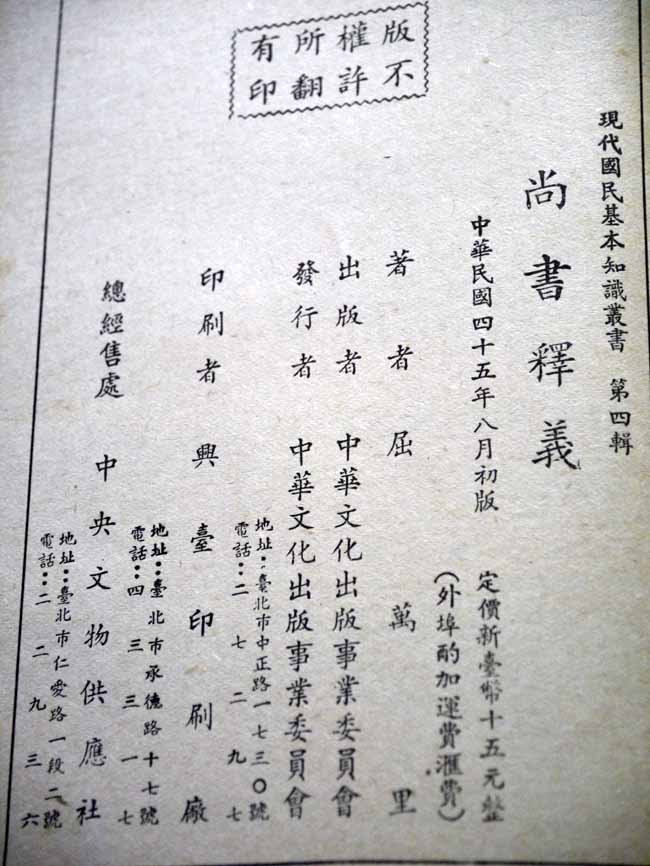 版權所有
不許翻印
現代國民基本知識叢書　第四輯
尚書釋義
中華民國四十五年八月初版
定價新臺幣十五元整
(外埠酌加運費滙費)
著者　屈萬里
出版者　中華文化出版事業委員會
發行者　中華文化出版事業委員會
地址：臺北市中正路一七三〇號
電話：二七二九七
印刷者　興臺印刷廠
地址：臺北市承德路十七號
電話：四三三一七
總經售處　中央文物供應社
地址：臺北市仁愛路一段二號
電話：二二九三六